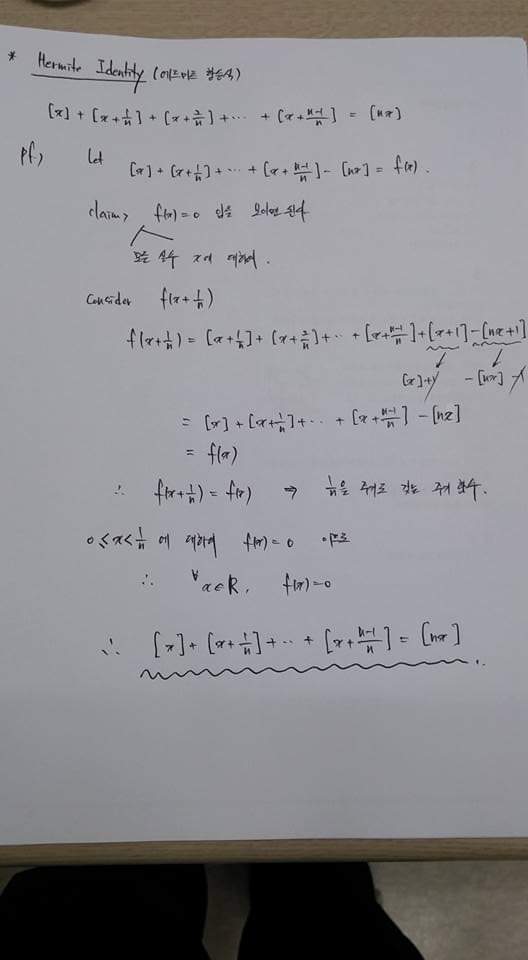 * Hermite Identity (에르미트 항등식)
[x] + [x+1/n] + [x+2/n] + ··· + [x+(n-1)/n] = [nx]
pf.) Let
[x] + [x+1/n] + ··· + [x+(n-1)/n] - [nx] = f(x).
claim> f(x)=0 임을 보이면 된다
모든 실수 x에 대하여.
Consider f(x+1/n)
f(x+1/n) = [x+1/n] + [x+2/n] + ·· + [x+(n-1)/n] + [x+1] - [nx+1]
[x]+1 - [nx] - 1
= [x] + [x+1/n] + ·· + [x+(n-1)/n] - [nx]
= f(x)
∴ f(x+1/n) = f(x) ⇒ 1/n을 주기로 갖는 주기함수.
0≤x<1/n 에 대하여 f(x)=0 이므로
∴ ∀x∈R, f(x)=0
∴ [x] + [x+1/n] + ·· + [x+(n-1)/n] = [nx].